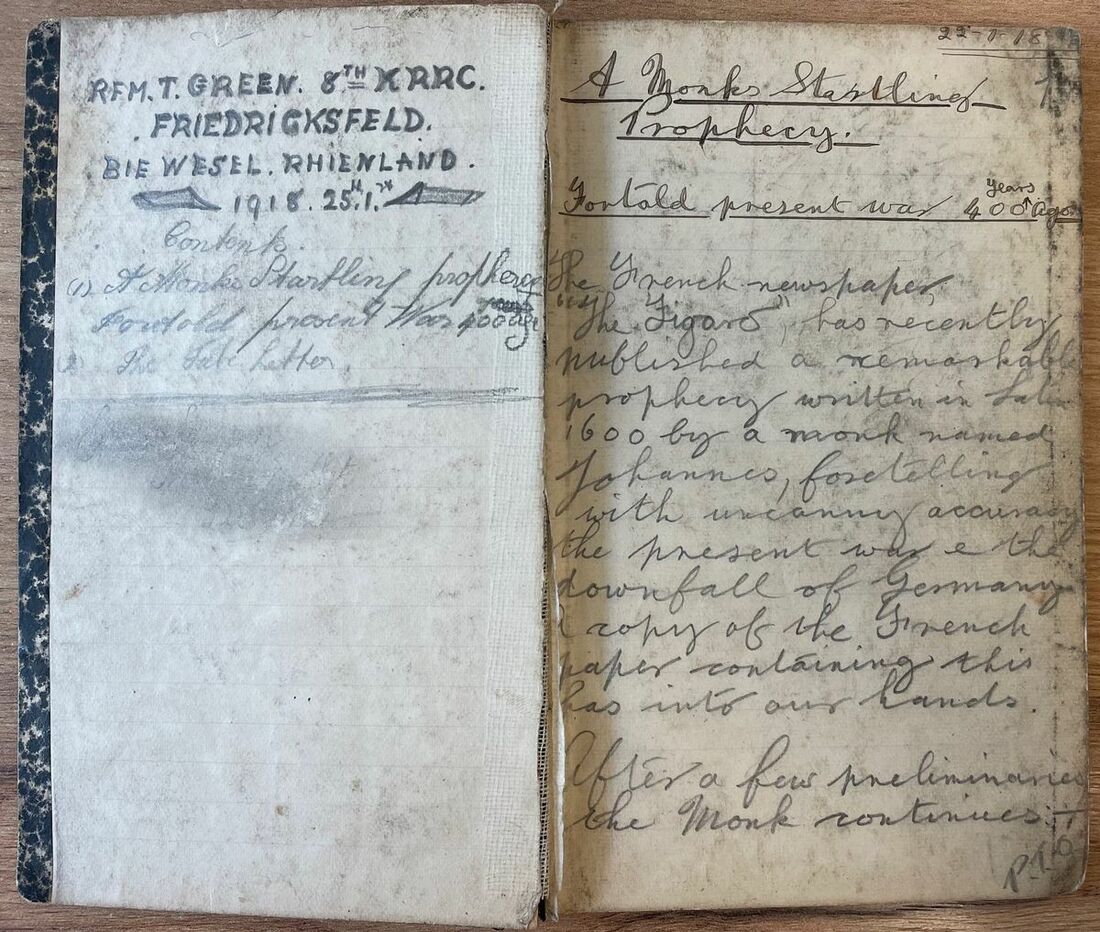 RFM. T. GREEN. 8TH K RRC.
FRIEDRICKSFELD.
BIE WESEL. RHIENLAND.
1918. 25.1.
Contents.
(1) A Monks Startling prophecy
Fortold present War 400 ago
The Letter.
22-1-18
A Monks Startling
Prophecy.
years
Fortold present war 400 ago
The French newspaper
"The Figaro", has recently
published a remarkable
prophecy written in Latin
1600 by a monk named
Johannes, foretelling
with uncanny accuracy
the present war e the
downfall of Germany
A copy of the French
paper containing this
has into our hands.
After a few preliminaries
the Monk continues:-
P.T.O